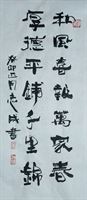 和風喜飲萬家春
厚德平鋪千里錦
癸卯
書